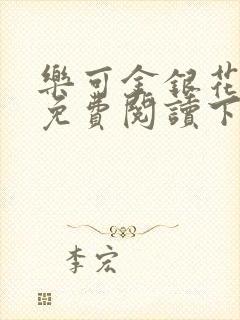 樂可金銀花
免費閱讀下
李宏